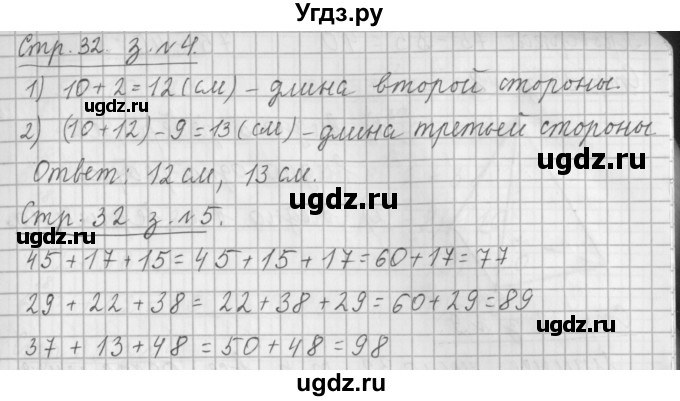 Угдз.ру
Стр. 32. з. № 4.
1) 10 + 2 = 12 (см) - длина второй стороны.
2) (10 + 12) - 9 = 13 (см) - длина третьей стороны
Ответ: 12 см, 13 см.
Стр. 32 з. № 5.
45 + 17 + 15 = 45 + 15 + 17 = 60 + 17 = 77
29 + 22 + 38 = 22 + 38 + 29 = 60 + 29 = 89
37 + 13 + 48 = 50 + 48 = 98
ugdz.ru
ugdz.ru
ugdz.ru
ugdz.ru
ugdz.ru
ugdz.ru
ugdz.ru
ugdz.ru
ugdz.ru